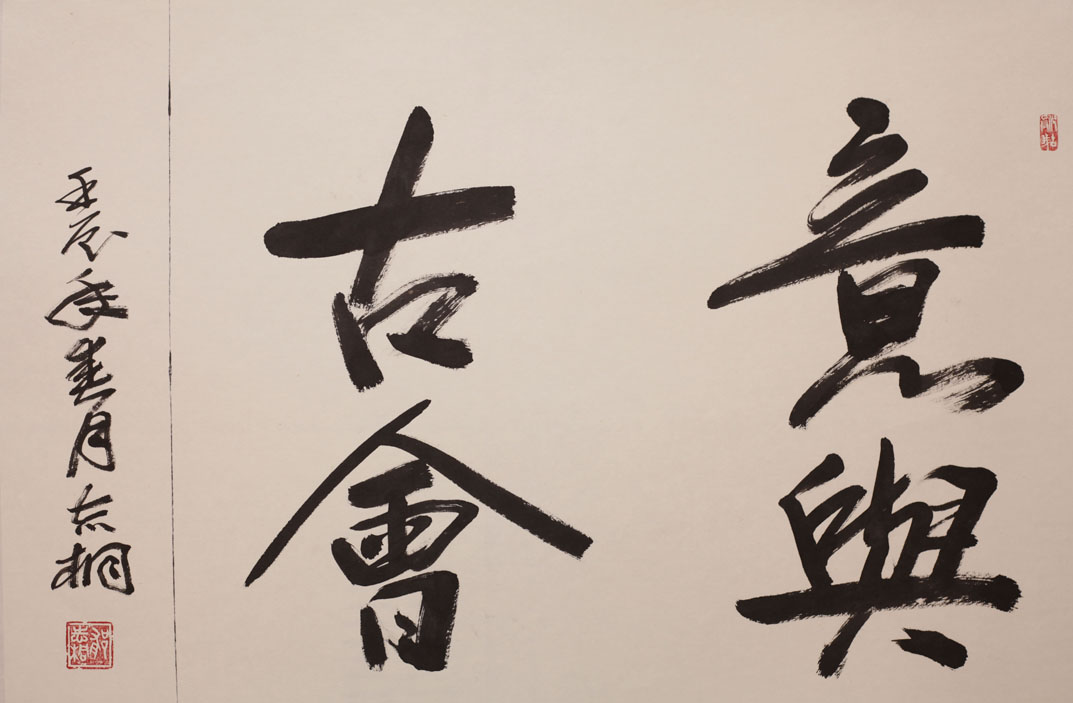 意與
古會
壬辰年春月志桐